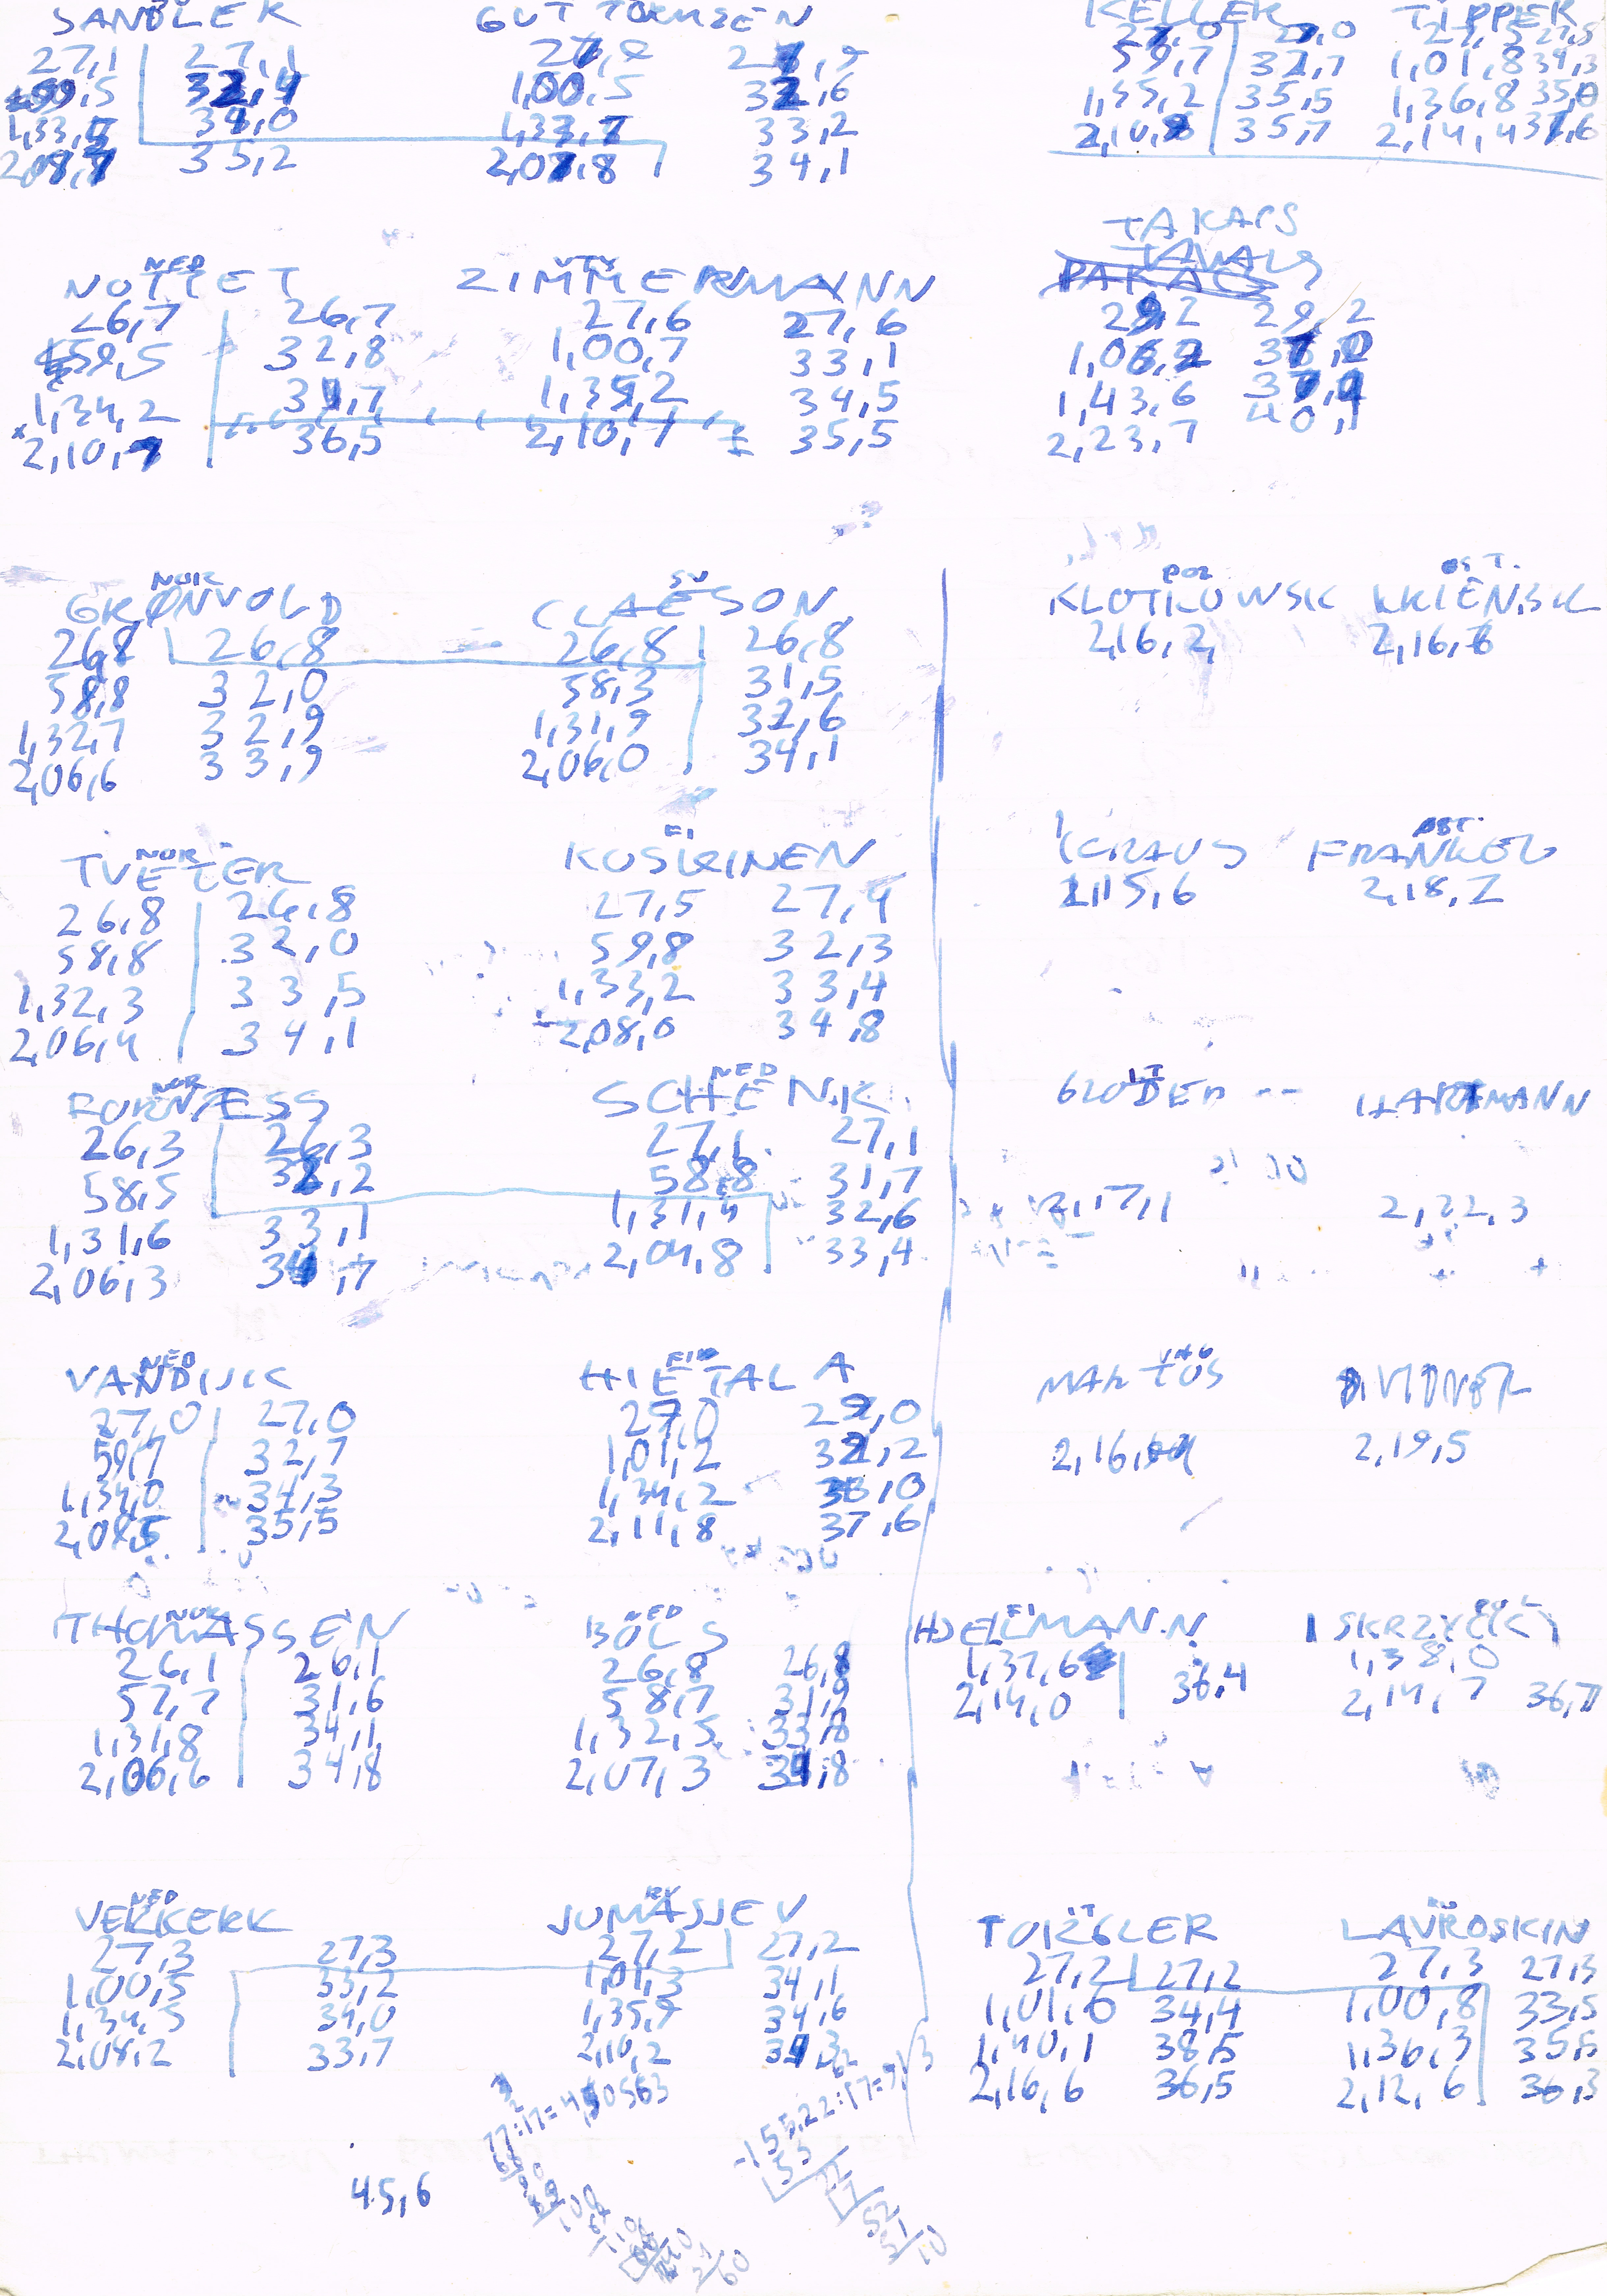 SANDLER GUTTORMSEN KELLER TIPPER
27,1 27,1 27,9 27,9 27,0 27,0 27,5 27,5
59,5 32,4 1,00,5 32,6 59,7 32,7 1,01,8 34,3
1,33,5 34,0 1,33,7 33,2 1,35,2 35,5 1,36,8 35,0
2,08,7 35,2 2,07,8 34,1 2,10,9 35,7 2,14,4 37,6
TAKACS
NED
NOTTET ZIMMERMANN
26,7 26,7 27,6 27,6 29,2 29,2
59,5 32,8 1,00,7 33,1 1,06,2 37,0
1,34,2 34,7 1,35,2 34,5 1,43,6 37,4
2,10,7 36,5 2,10,7 35,5 2,23,7 40,1
NOR SV POL ØST.
GRØNVOLD CLAESON KLOTKOWSK KRIENSK
26,8 26,8 26,8 26,8 2,16,2 2,16,6
58,8 32,0 58,3 31,5
1,32,7 32,9 1,31,9 32,6
2,06,6 33,9 2,06,0 34,1
NOR FI ØST.
TVETER KOSKINEN KRAUS FRANKEL
26,8 26,8 27,5 27,4 2,15,6 2,18,2
58,8 32,0 59,8 32,3
1,32,3 33,5 1,33,2 33,4
2,06,4 34,1 2,08,0 34,8
NOR NED IT
FORNÆSS SCHENK GLODER -- HARTMANN
26,3 26,3 27,1 27,1
58,5 32,2 58,8 31,7 2,17,1 2,22,3
1,31,6 33,1 1,31,4 32,6
2,06,3 34,7 2,04,8 33,4
NED FIN
VANDIJK HIETALA MARTOS
27,0 27,0 29,0 29,0
59,7 32,7 1,01,2 32,2 2,16,4 2,19,5
1,34,0 34,3 1,34,2 33,0
2,09,5 35,5 2,11,8 37,6
NOR NED FI
THOMASSEN BOLS HJELLMANN SKRZYCKI
26,1 26,1 26,8 26,8 1,37,6 1,38,0
57,7 31,6 58,7 31,9 2,14,0 36,4 2,14,7 36,7
1,31,8 34,1 1,32,5 33,8
2,06,6 34,8 2,07,3 34,8
NED IT
VERKERK JUMASJEV TORGLER LAVROSKIN
27,3 27,3 27,2 27,2 27,2 27,2 27,3 27,3
1,00,5 33,2 1,01,3 34,1 1,01,6 34,4 1,00,8 33,5
1,34,5 34,0 1,35,9 34,6 1,40,1 38,5 1,36,3 35,5
2,08,2 33,7 2,10,2 34,3 2,16,6 36,5 2,12,6 36,3
45,6